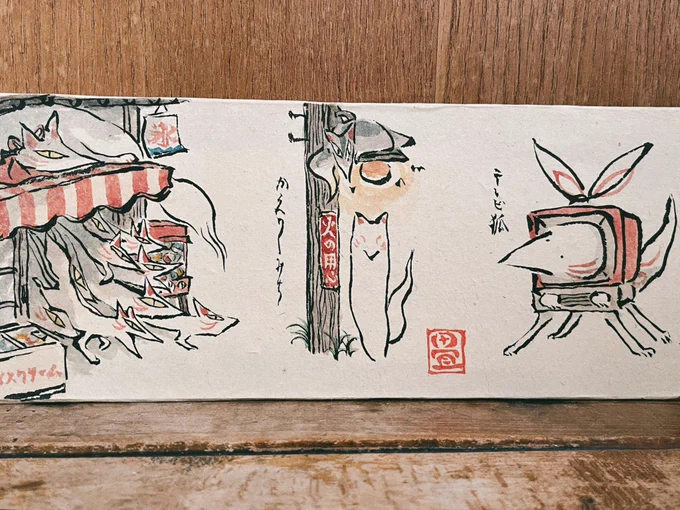 氷
イスクリーム
かえりみち
火の用心
テレビ狐
畳